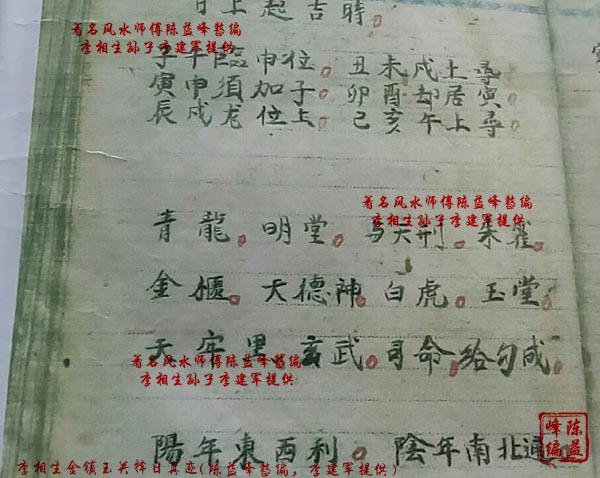 日上起吉時。
著名风水师傅陈益峰整编
李相生孙子李建军提供
子午臨申位。丑未戌上尋
寅申須加子。卯酉却居寅
辰戌龙位上。己亥午上尋
著名风水师傅陈益峰整编
李相生孙子李建军提供
青龍。明堂。天刑。朱雀。
金櫃。天德神。白虎。玉堂。
天牢黑亥武。司命。給句成。
著名风水师傅陈益峰整编
李相生孙子李建军提供
陽年東西利。陰年南北通
陈益峰编
李相生金锁玉关择日真迹(陈益峰整编，李建军提供)